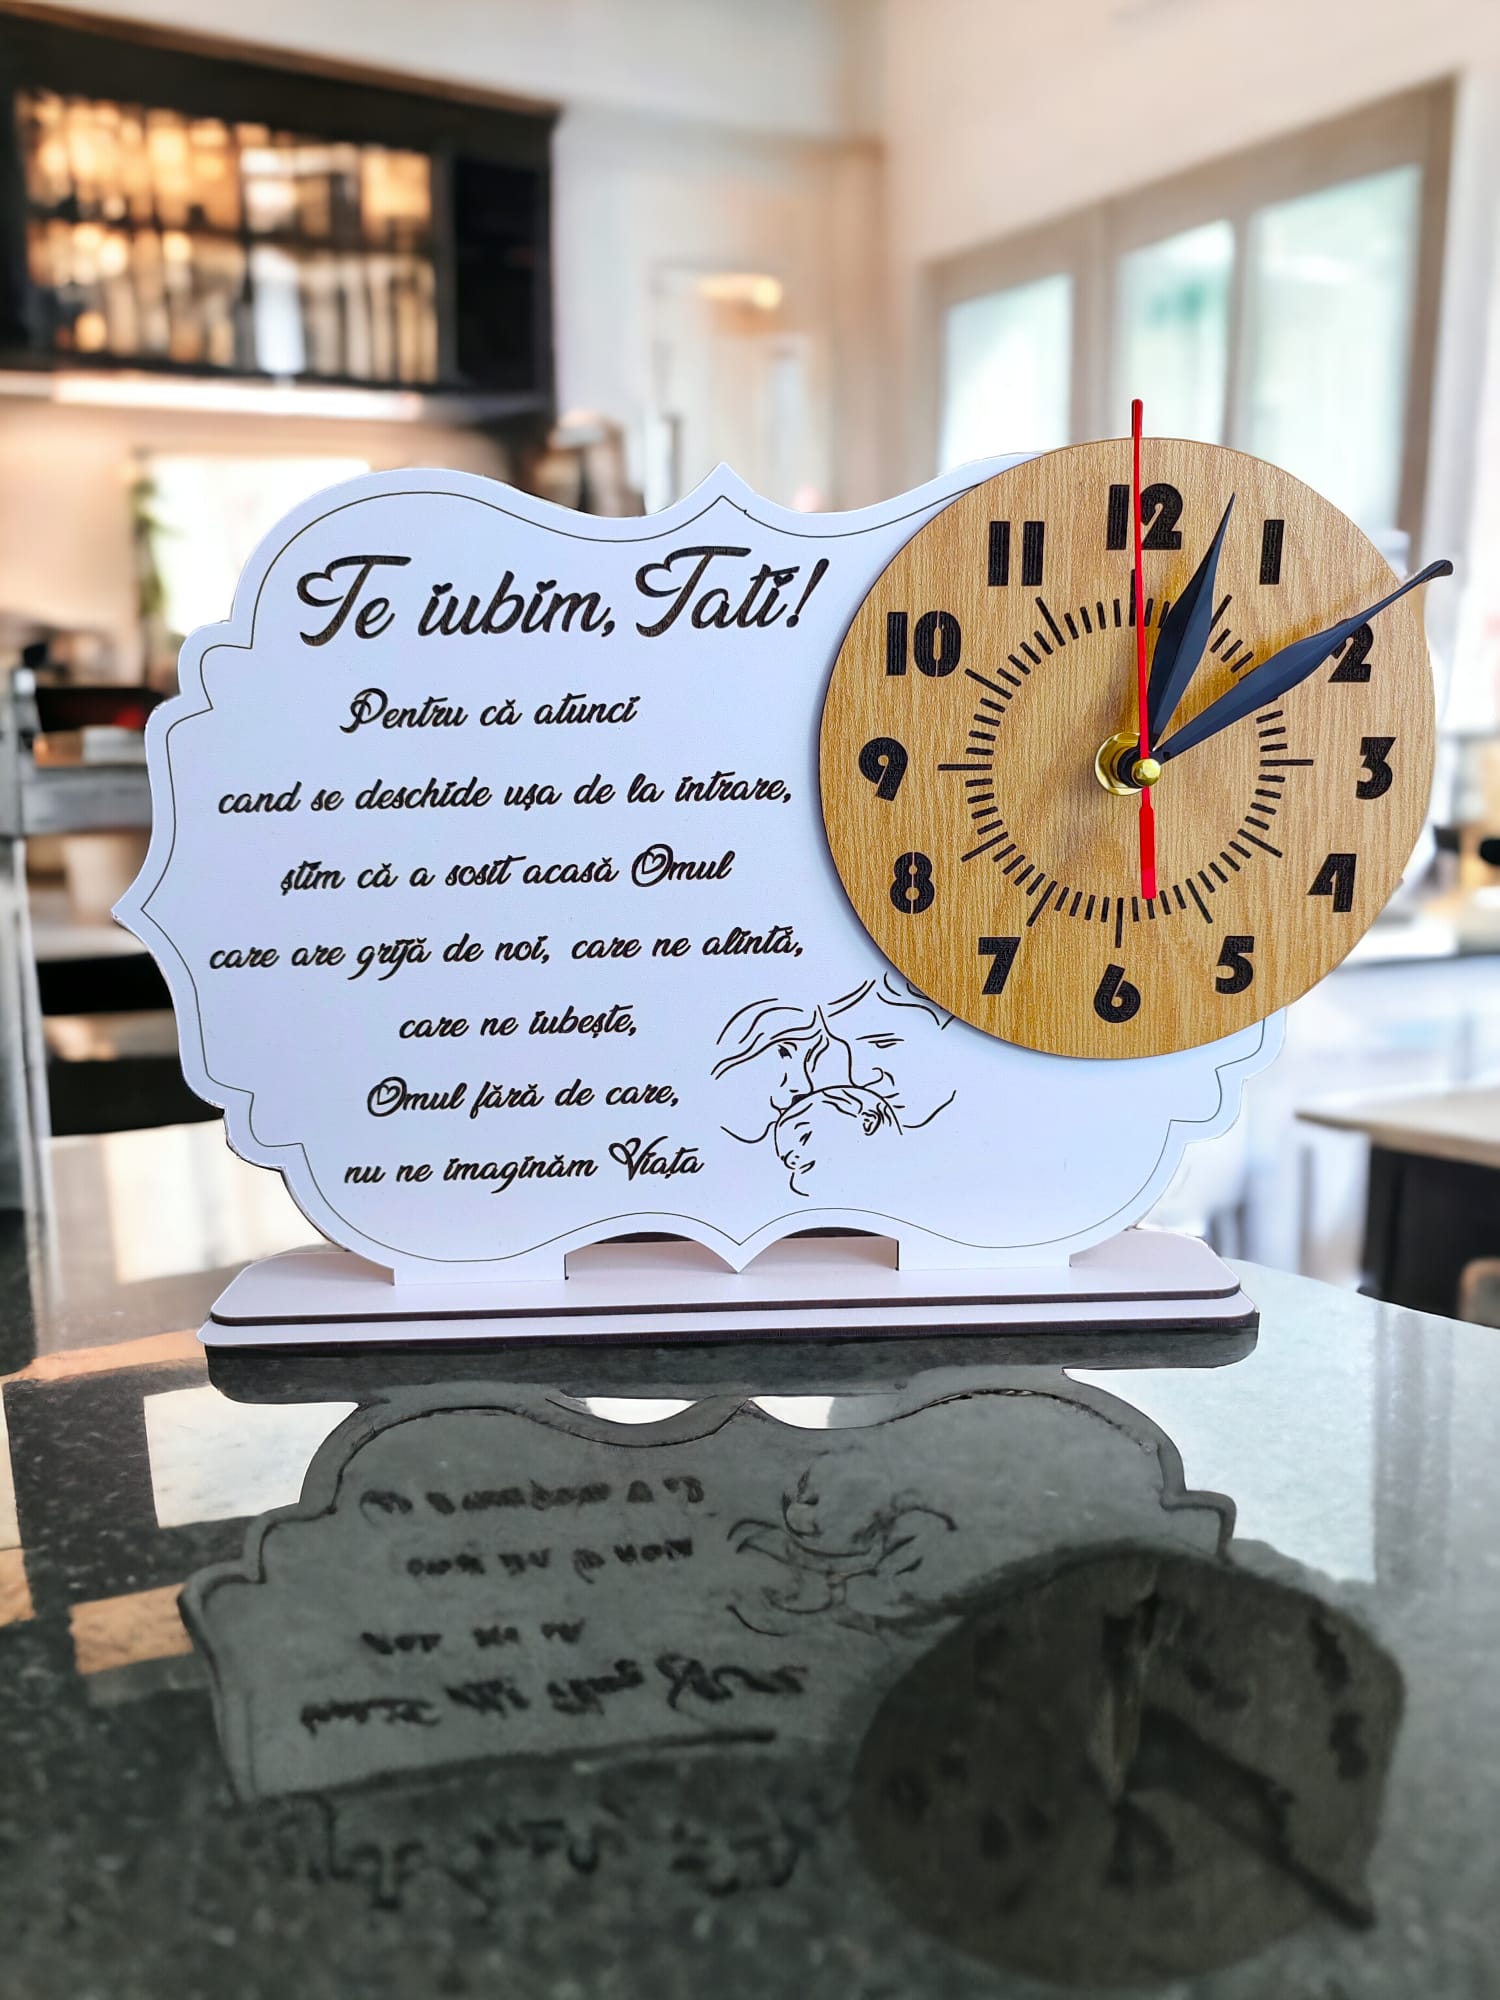 Te iubim, Tati!
Pentru că atunci
cand se deschide ușa de la intrare,
știm că a sosit acasă Omul
care are grijă de noi, care ne alintă,
care ne iubește,
Omul fără de care,
nu ne imaginăm Viața
12
1
2
3
4
5
6
7
8
9
10
11